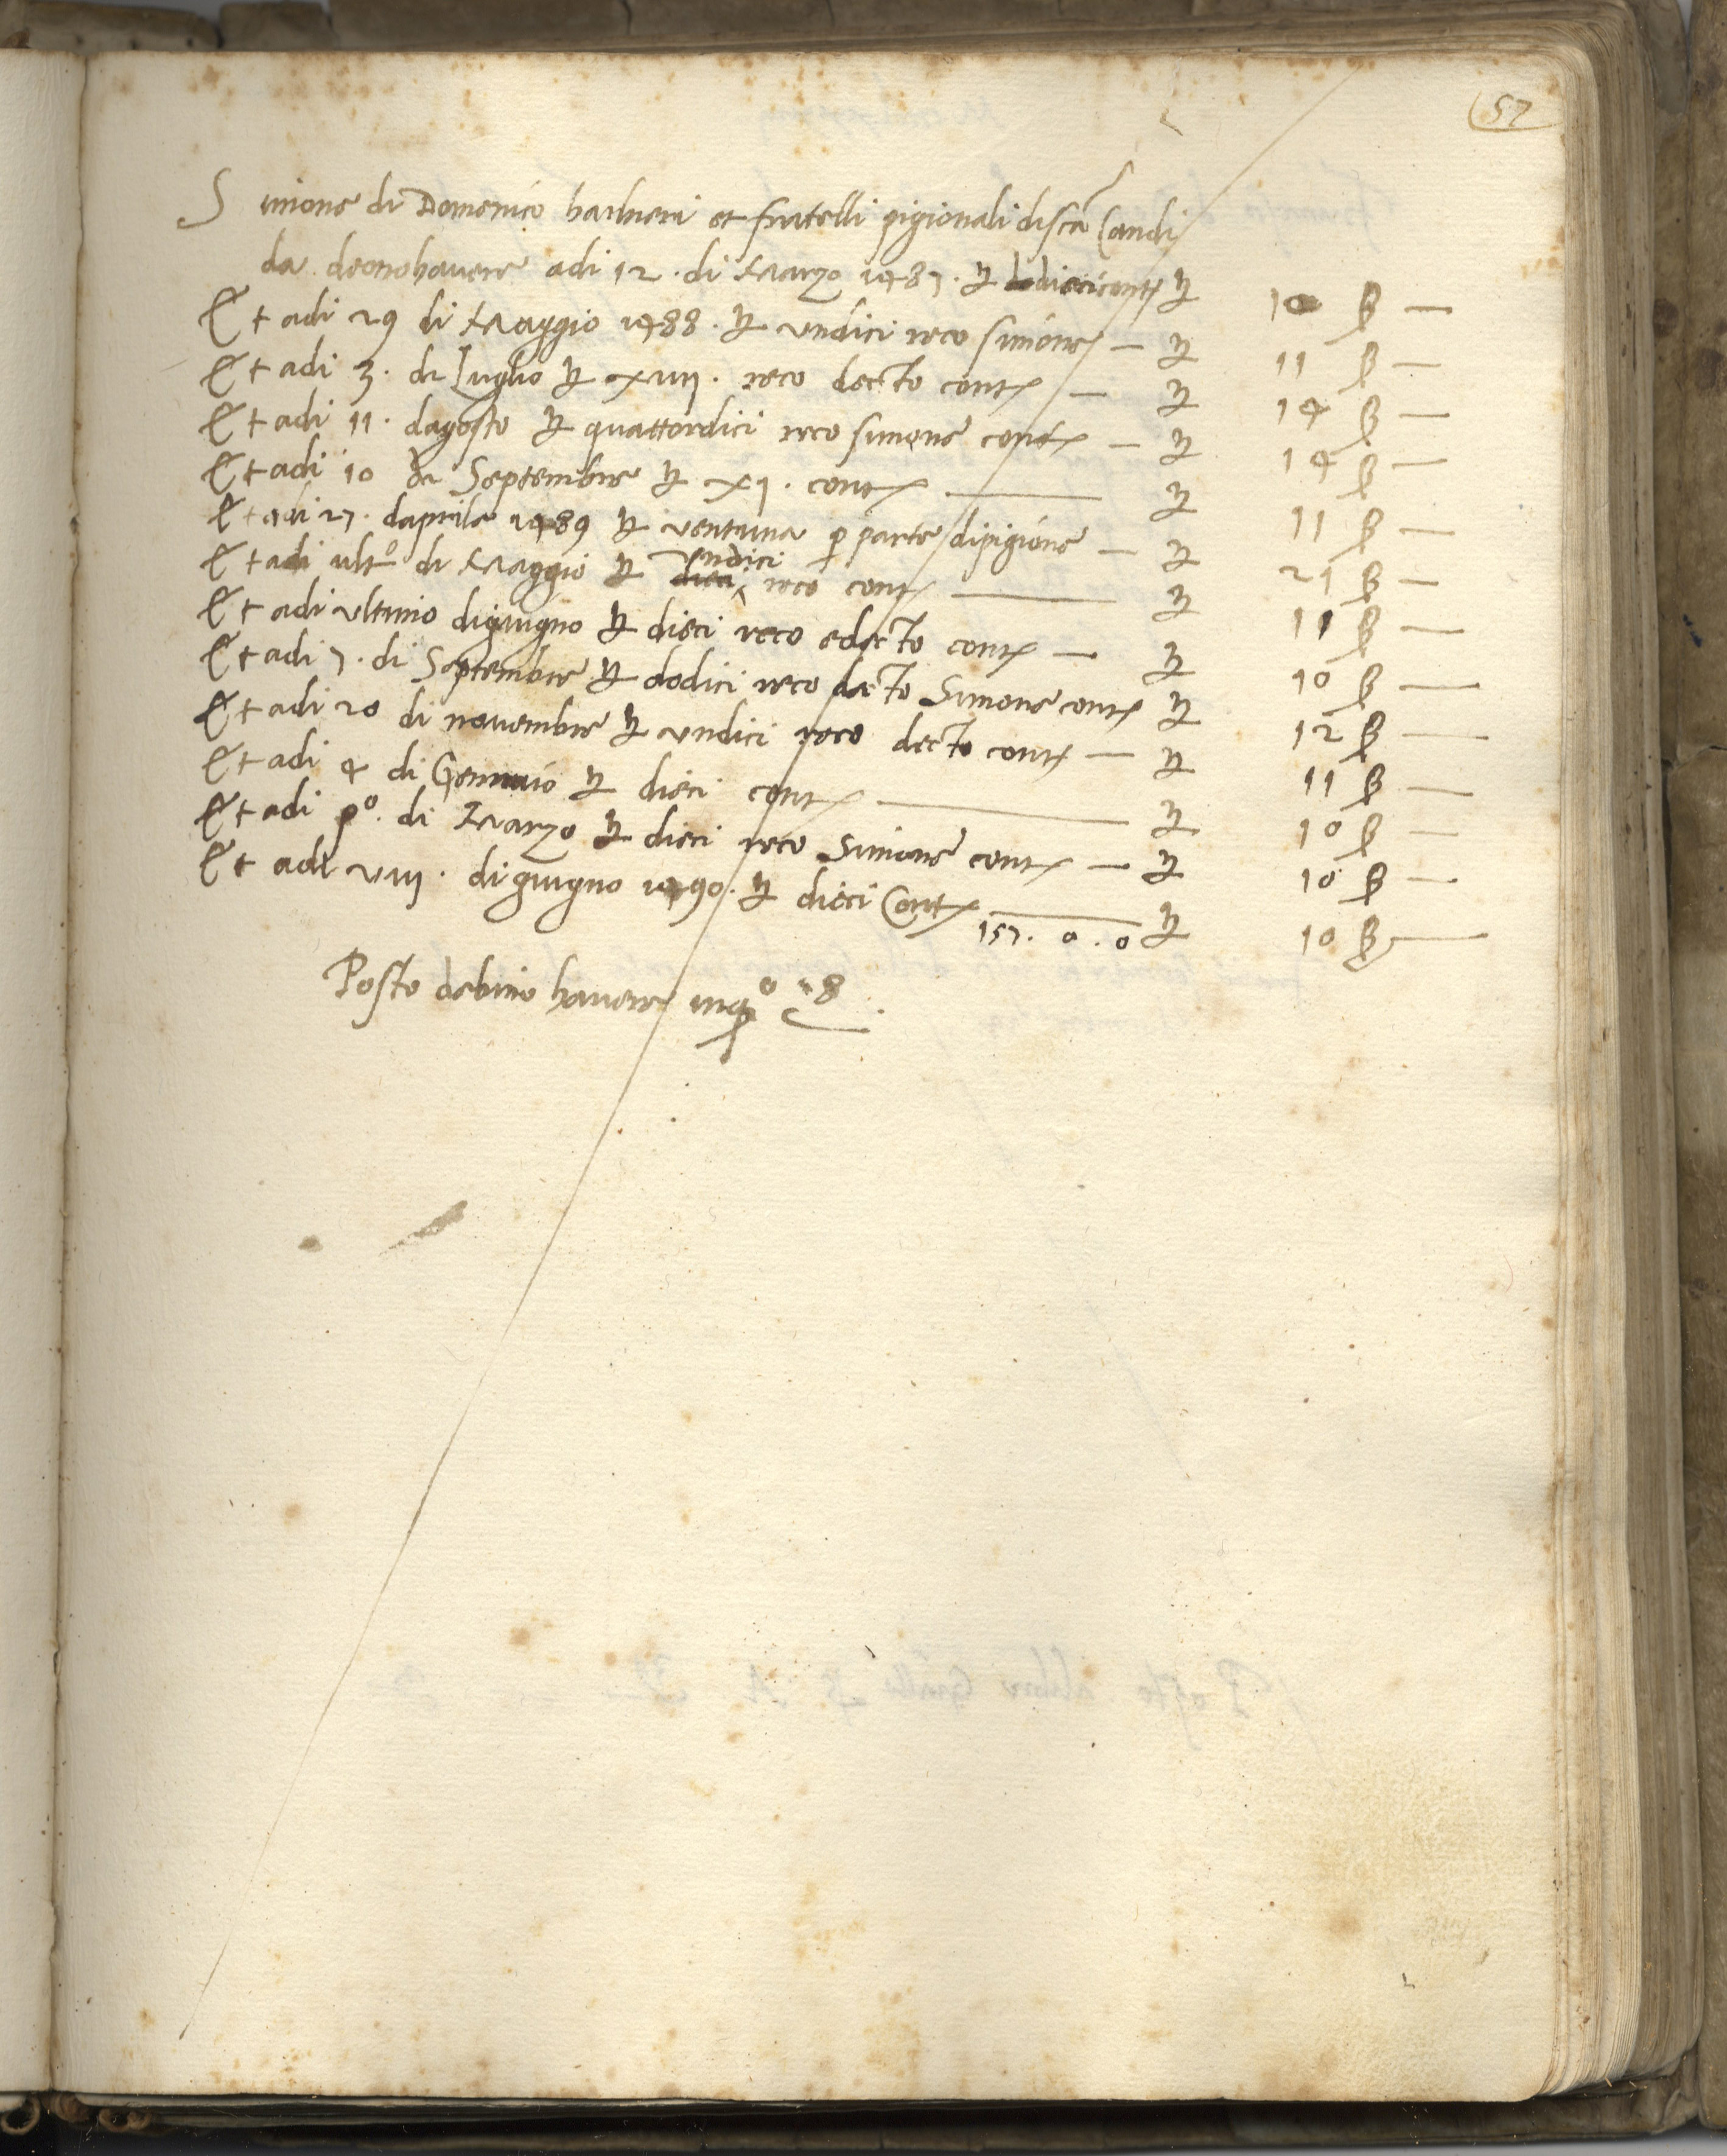 57
Simone di Domenico barbieri et fratelli pigionali di sca Candi
da deono havere adi 12. di Marzo 1487. ₶ dieci contj ₶ 10 ß —
Et adi 29 di Maggio 1488. ₶ undici reco simone — ₶ 11 ß —
Et adi 3. di Luglio ₶ xiiij. reco decto contj — ₶ 14 ß —
Et adi 11. dagosto ₶ quattordici reco simone contj — ₶ 14 ß —
Et adi 10 di Septembre ₶ xj. contj — ₶ 11 ß —
Et adi 27. daprile 1489 ₶ ventuna p parte di pigione — ₶ 21 ß —
Et adi ulto di Maggio ₶ undici reco contj — ₶ 11 ß —
Et adi ultimo di giugno ₶ dieci reco edecto contj — ₶ 10 ß —
Et adi 7. di Septembre ₶ dodici reco decto Simone contj ₶ 12 ß —
Et adi 20 di novembre ₶ undici reco decto contj — ₶ 11 ß —
Et adi 4 di Gennaio ₶ dieci contj — ₶ 10 ß —
Et adi po. di Marzo ₶ dieci reco Simone contj — ₶ 10 ß —
Et adi viij. di giugno 1490. ₶ dieci Contj — ₶ 10 ß —
157. 0. 0
Posto debino havere in qo 8